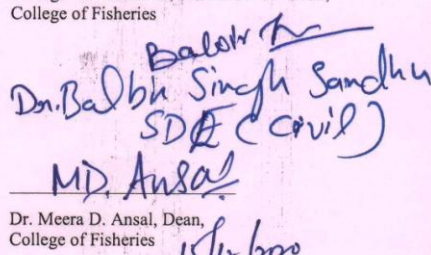 College of Fisheries
Balbir
Dr. Balbir Singh Sandhu
SDE (Civil)
MD. Ansal
Dr. Meera D. Ansal, Dean,
College of Fisheries
15/12/2020